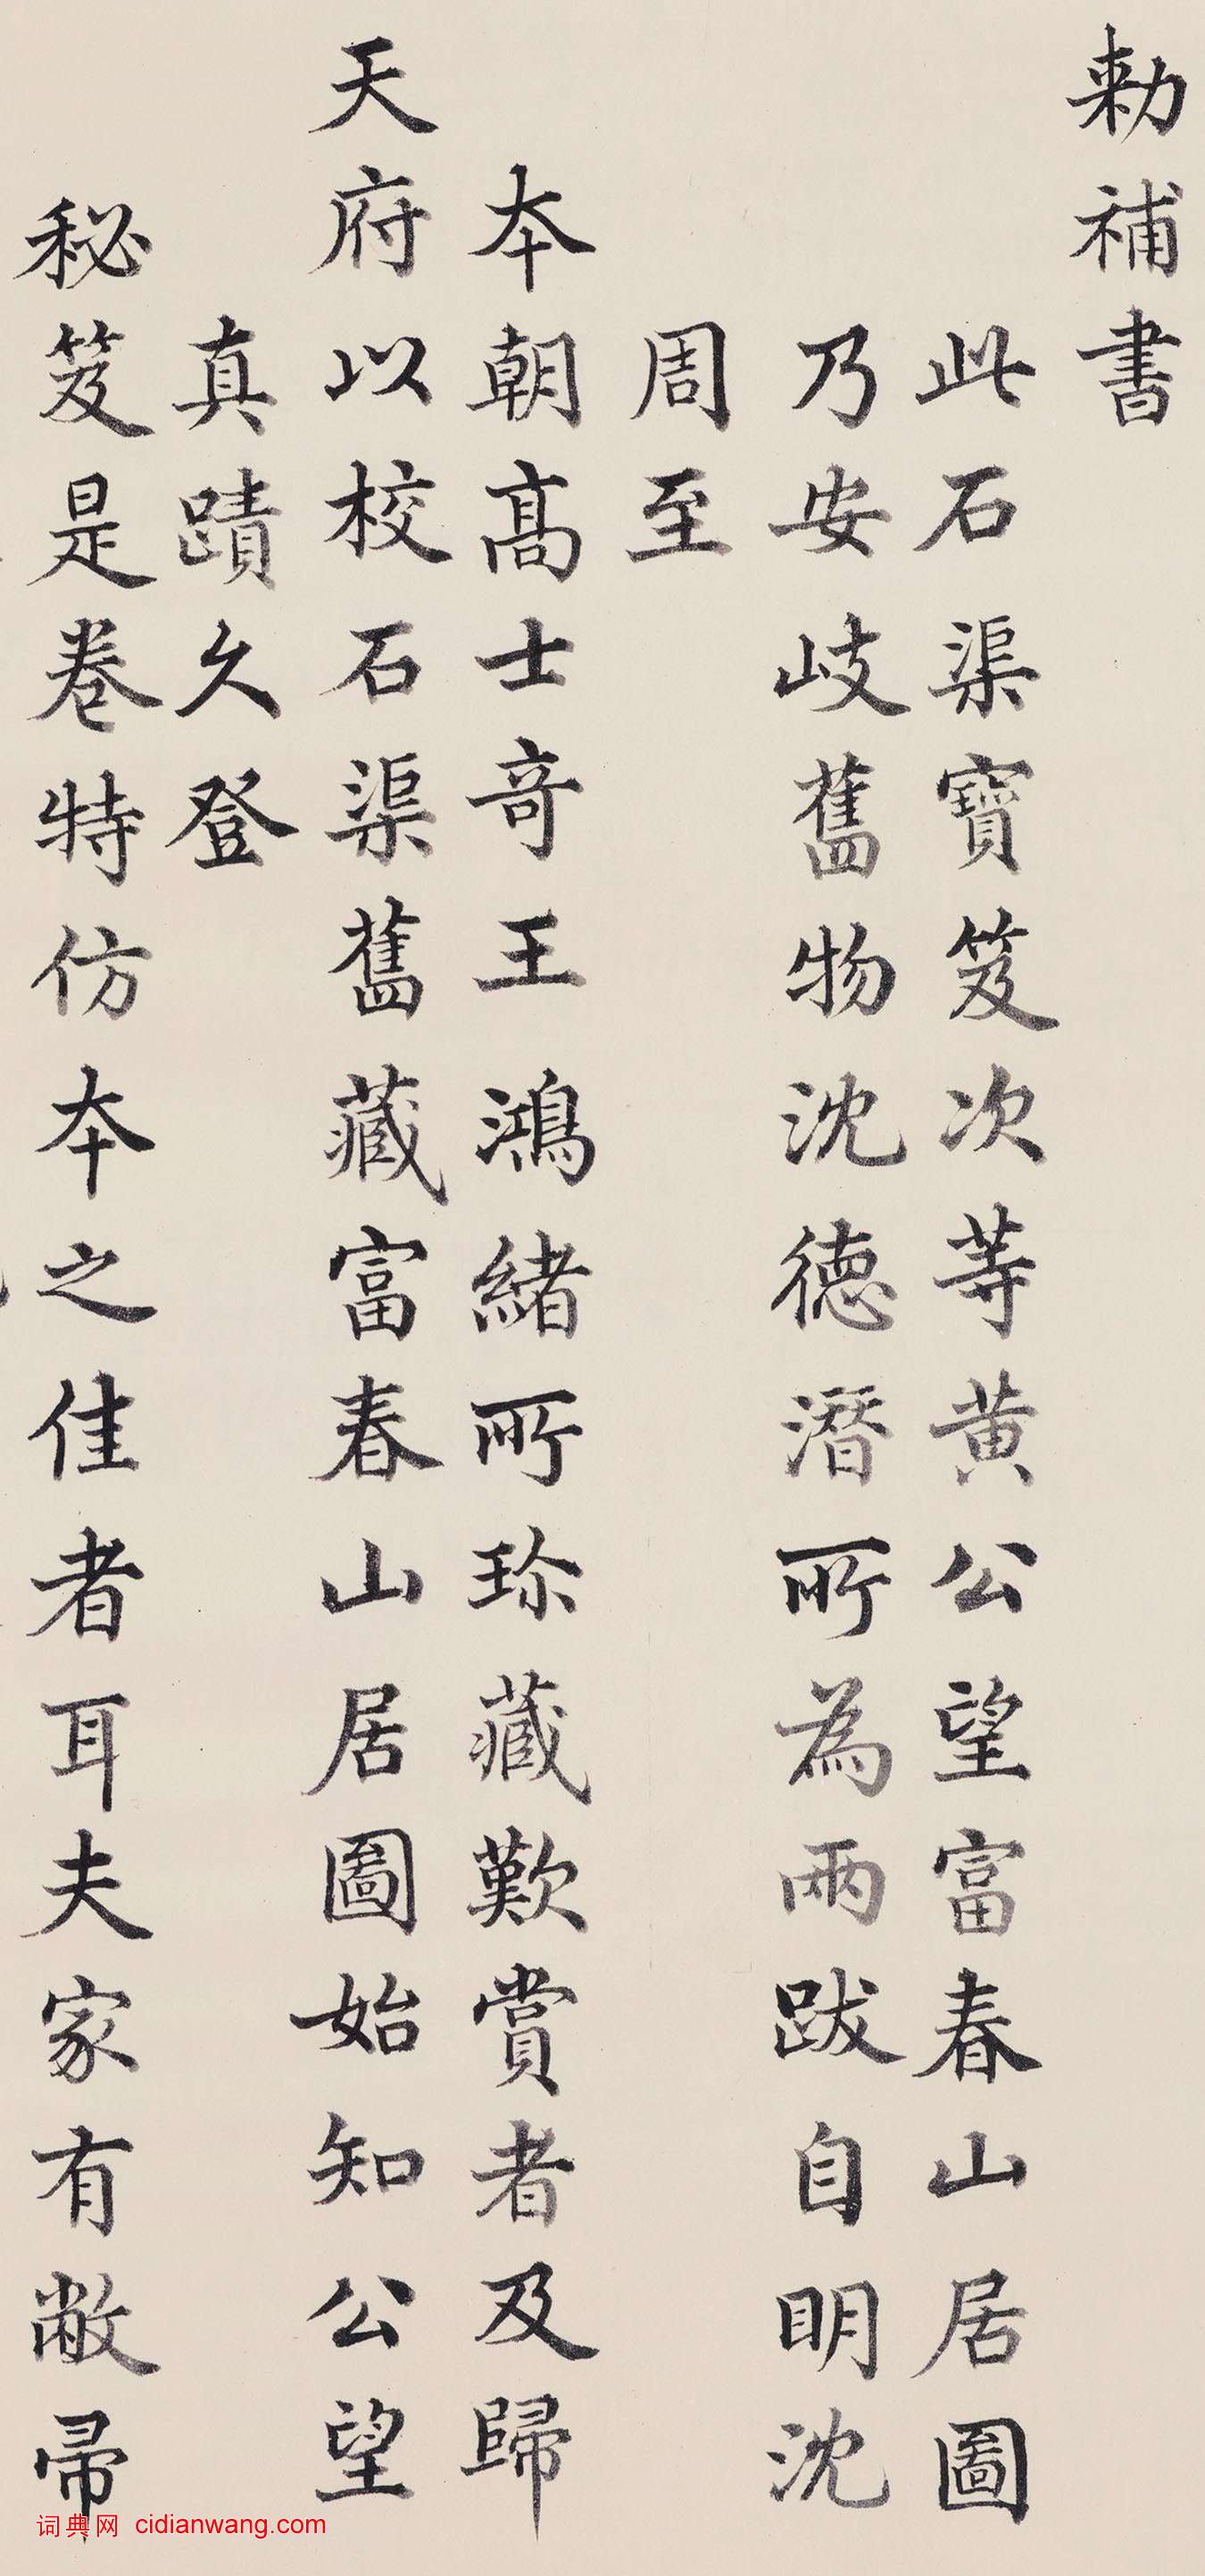 勅補書
此石渠寶笈次等黄公望富春山居圖
乃安岐舊物沈德潛所為兩跋自明沈
周至
本朝高士奇王鴻緒所珍藏歎賞者及歸
天府以校石渠舊藏富春山居圖始知公望
真蹟久登
秘笈是卷特仿本之佳者耳夫家有敝帚
词典网 cidianwang.com